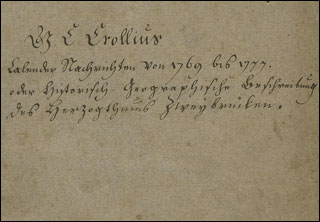 G C Crollius
Calender Nachrichten von 1769 bis 1777.
oder Historisch-Geographische Beschreibung
des Herzogthums Zweybrücken.